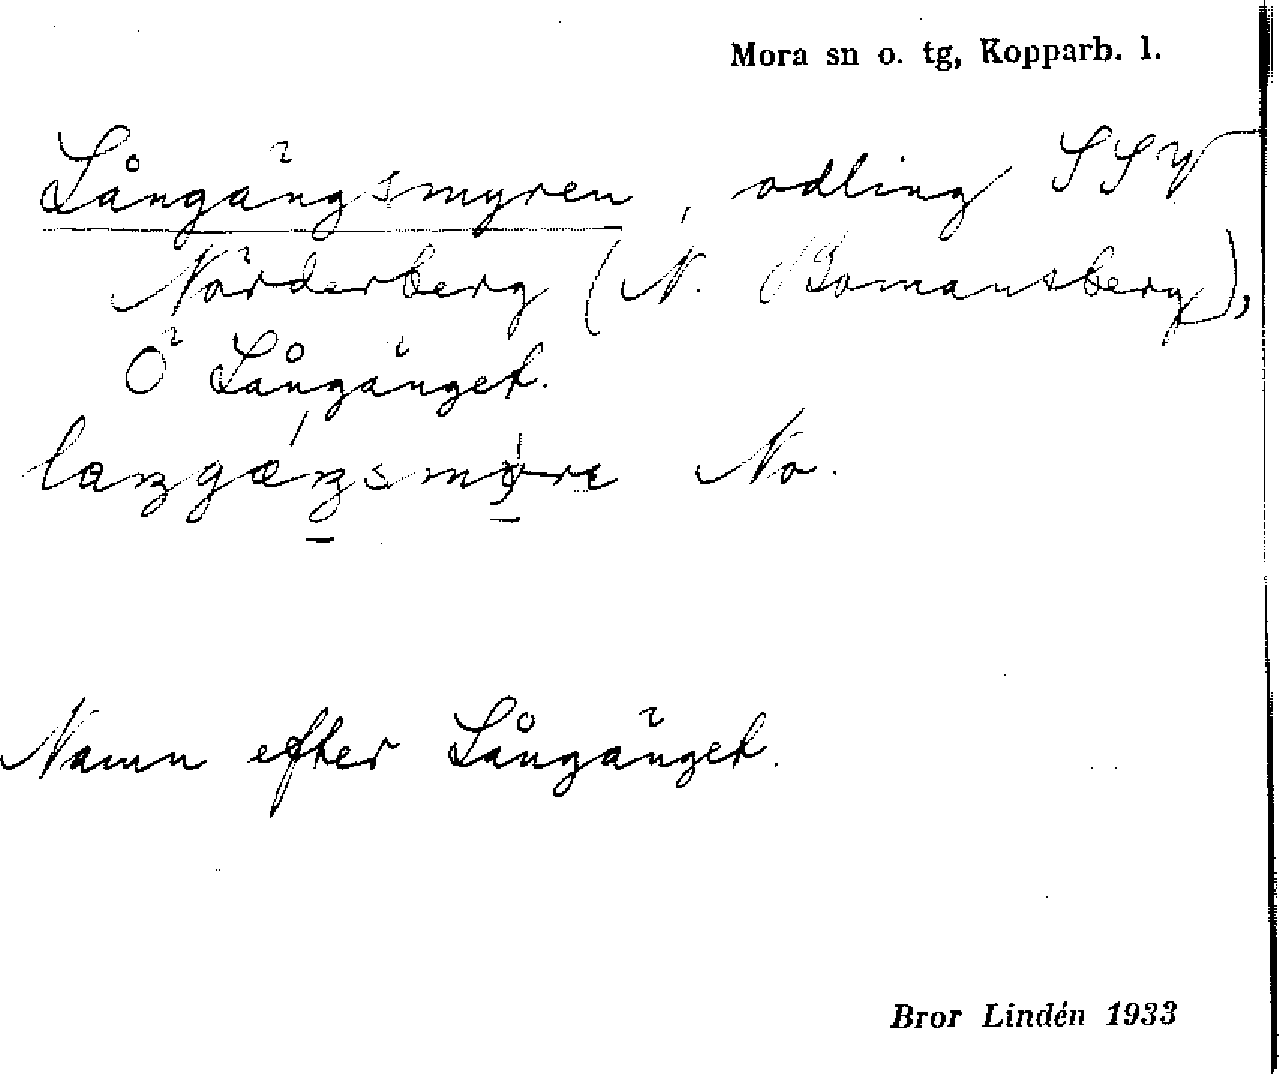 Mora sn o. tg, Kopparb. l.
Långängsmyren, odling SSV
Nörderberg (N. Bomansberg),
Ö Långänget.
No.
Namn efter Långänget.
Bror Lindén 1933